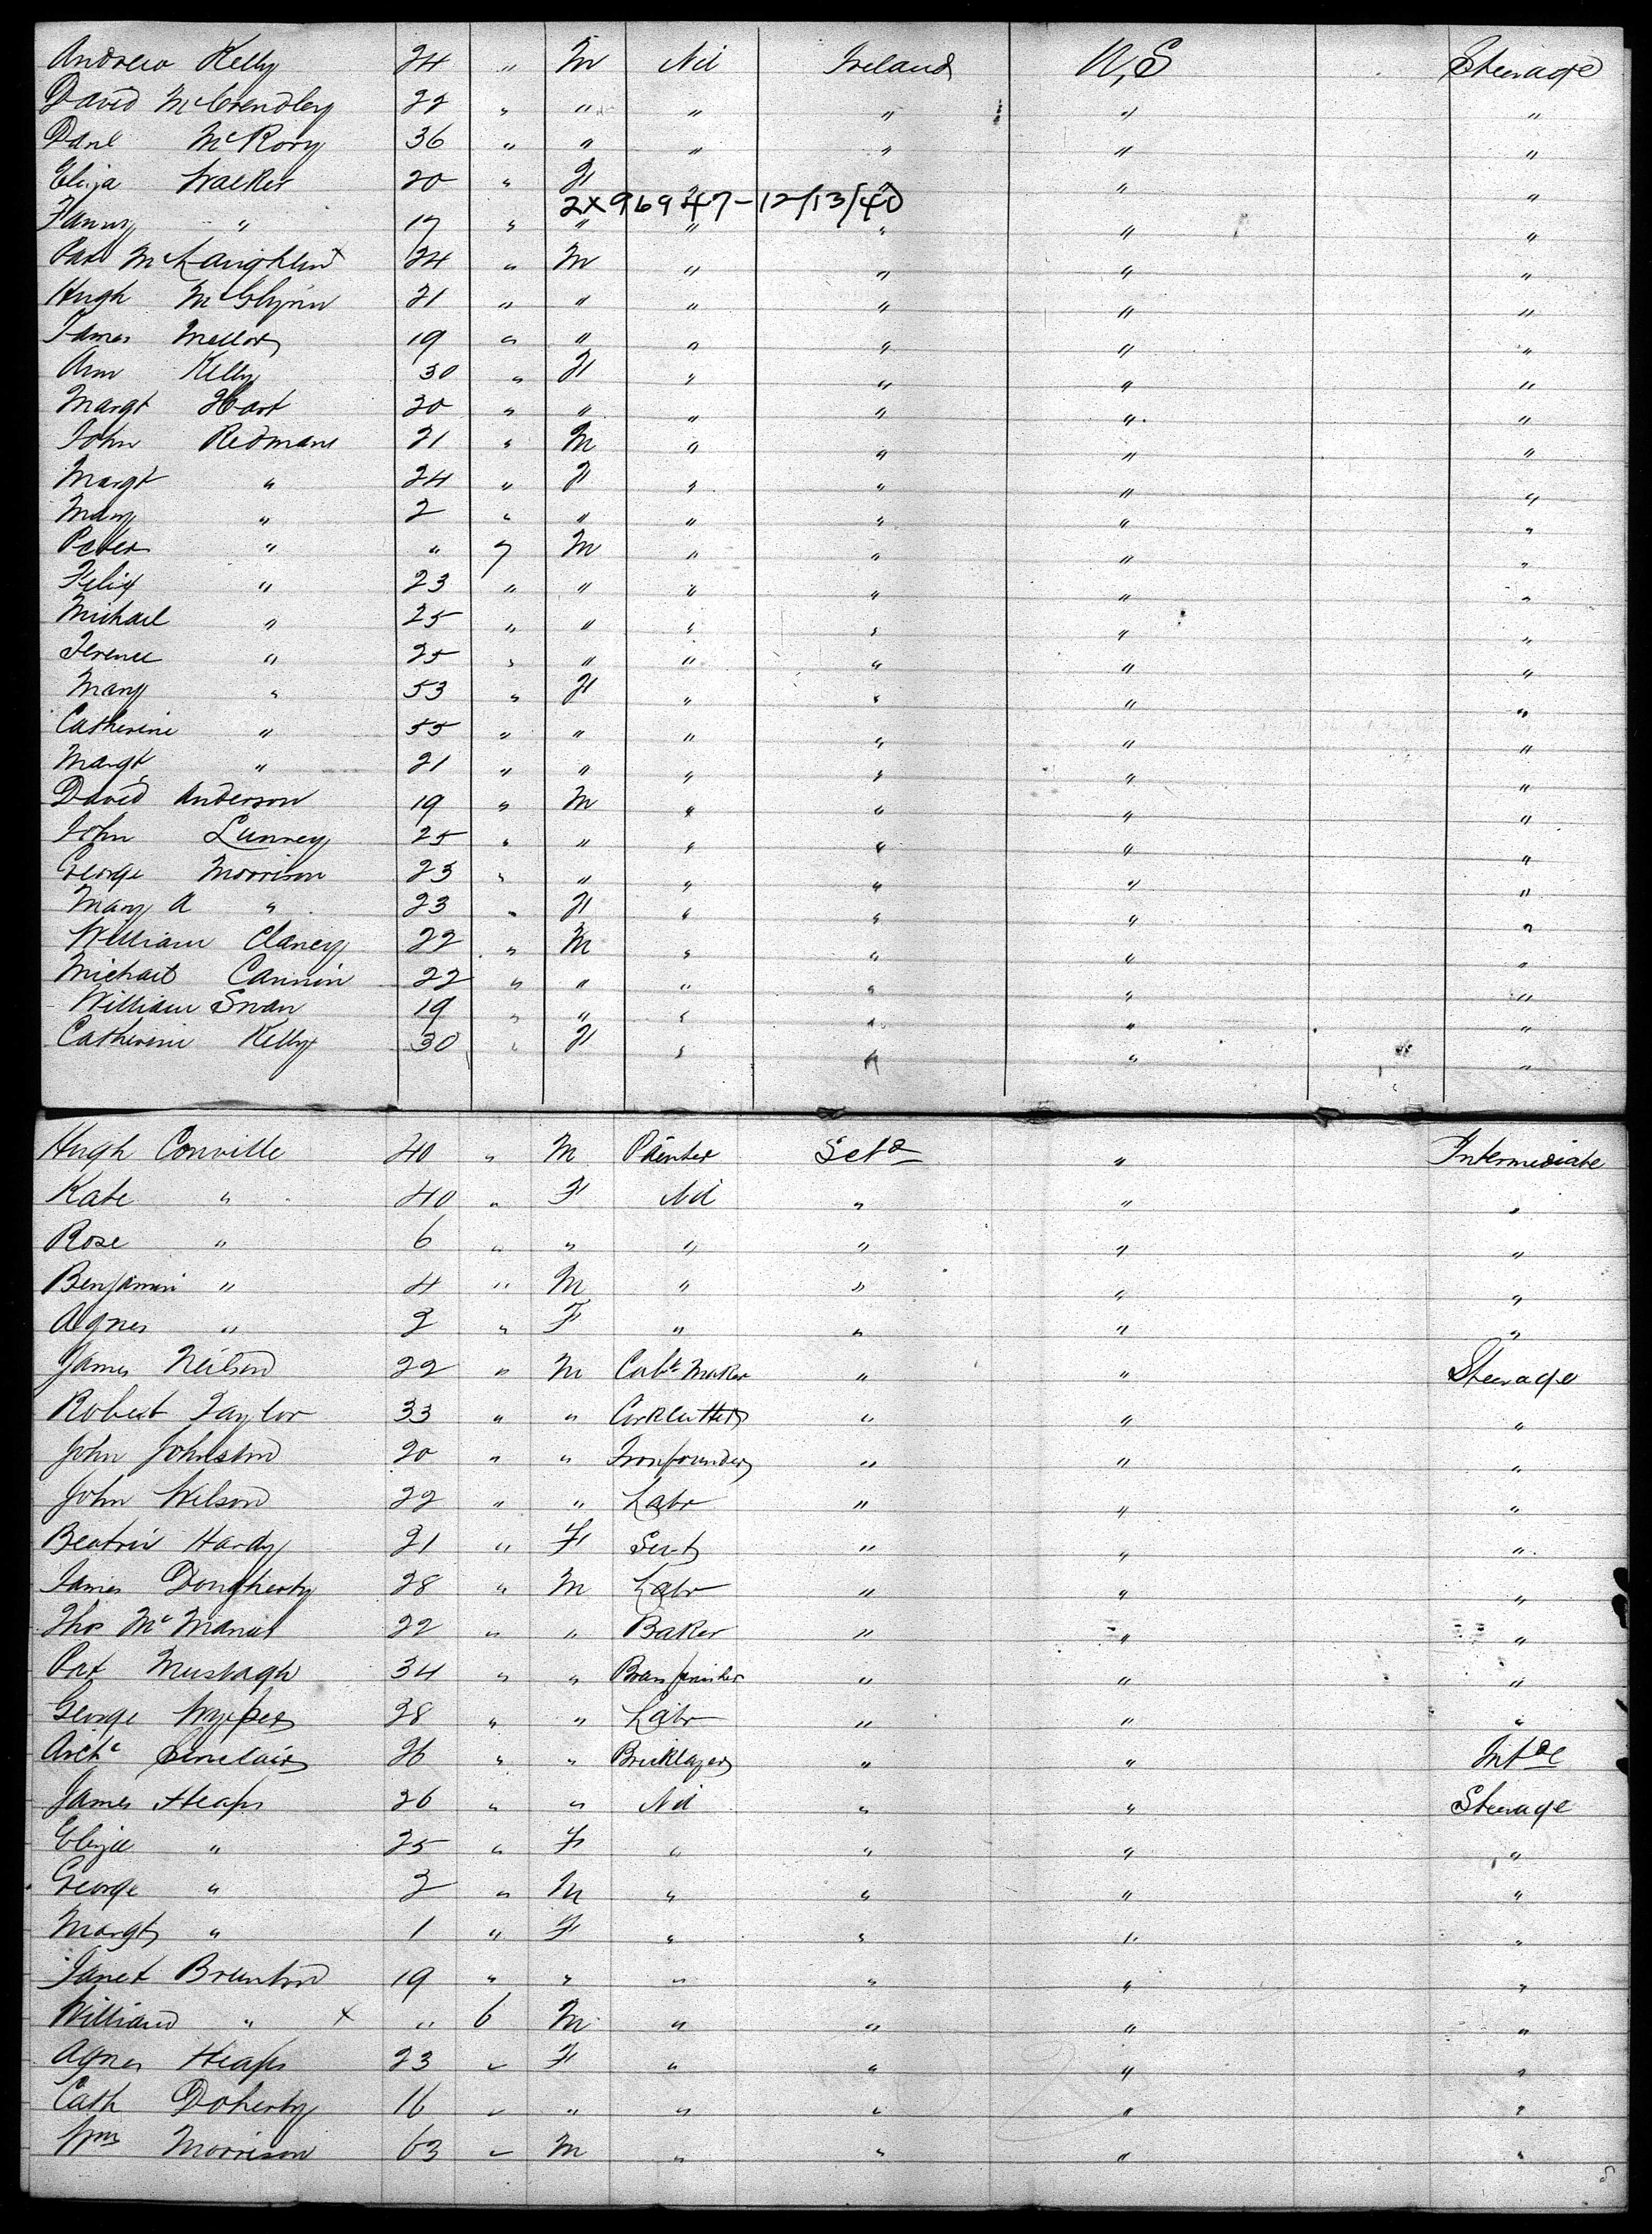 Andrew Kelly 24 " M Nil Ireland U,S Steerage
David McCrendley 22 " " " " " "
Danl McRory 36 " " " " " "
Eliza Walker 20 " F " " " "
2X96947-12/13/40
Fanny " 17 " " " " " "
Pat McLaughlin x 24 " M " " " "
Hugh McGlynn 21 " " " " " "
James Mellor 19 " " " " " "
Ann Kelly 30 " F " " " "
Margt Hart 20 " " " " " "
John Redmans 21 " M " " " "
Margt " 24 " F " " " "
Mary " 2 " " " " " "
Peter " " 7 M " " " "
Felix " 23 " " " " " "
Michael " 25 " " " " " "
Terence " 25 " " " " " "
Mary " 53 " F " " " "
Catherine " 55 " " " " " "
Margt " 21 " " " " " "
David Anderson 19 " M " " " "
John Lunney 25 " " " " " "
George Morrison 23 " " " " " "
Mary A " 23 " F " " " "
William Clancy 22 " M " " " "
Michael Cannin 22 " " " " " "
William Swan 19 " " " " " "
Catherine Kelly 30 " F " " " "
Hugh Conville 40 " M Painter Scta " Intermediate
Kate " 40 " F Nil " " "
Rose " 6 " " " " " "
Benjamin " 4 " M " " " "
Agnes " 2 " F " " " "
James Neilson 22 " M Cabt Maker " " Steerage
Robert Taylor 33 " " Corkcutter " " "
John Johnston 20 " " Ironfounder " " "
John Wilson 22 " " Labr " " "
Beatrix Hardy 21 " F Servt " " "
James Dougherty 28 " M Labr " " "
Thos McManus 22 " " Baker " " "
Pat Murtagh 34 " " Brassfinisher " " "
George Wyper 28 " " Labr " " "
Archd Sinclair 26 " " Bricklayer " " Inte
James Heaps 26 " " Nil " " Steerage
Eliza " 25 " F " " " "
George " 2 " M " " " "
Margt " 1 " F " " " "
Janet Brunton 19 " " " " " "
William " x " 6 M " " " "
Agnes Heaps 23 " F " " " "
Cath Doherty 16 " " " " " "
Wm Morrison 63 " M " " " "